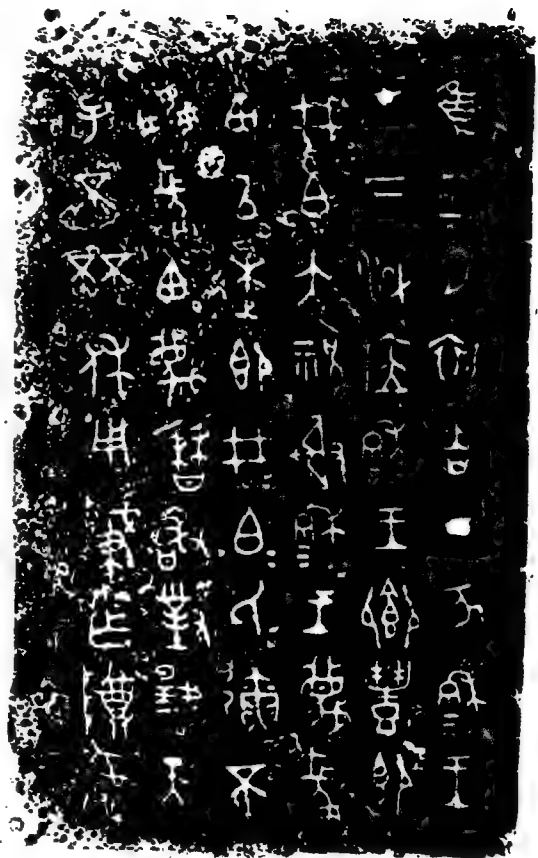 隹三月初吉丁亥穆王
才下淢应穆王鄉豊即
井白大祝射穆王蔑長
甶㠯逨即井白氏寅不
姦長甶蔑曆敢對揚天
子不𠀠休用肇乍尊彝